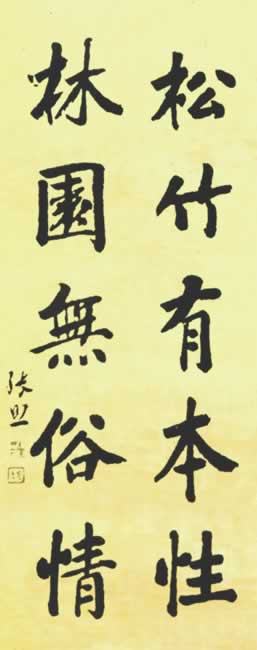 松竹有本性
林園無俗情
張照